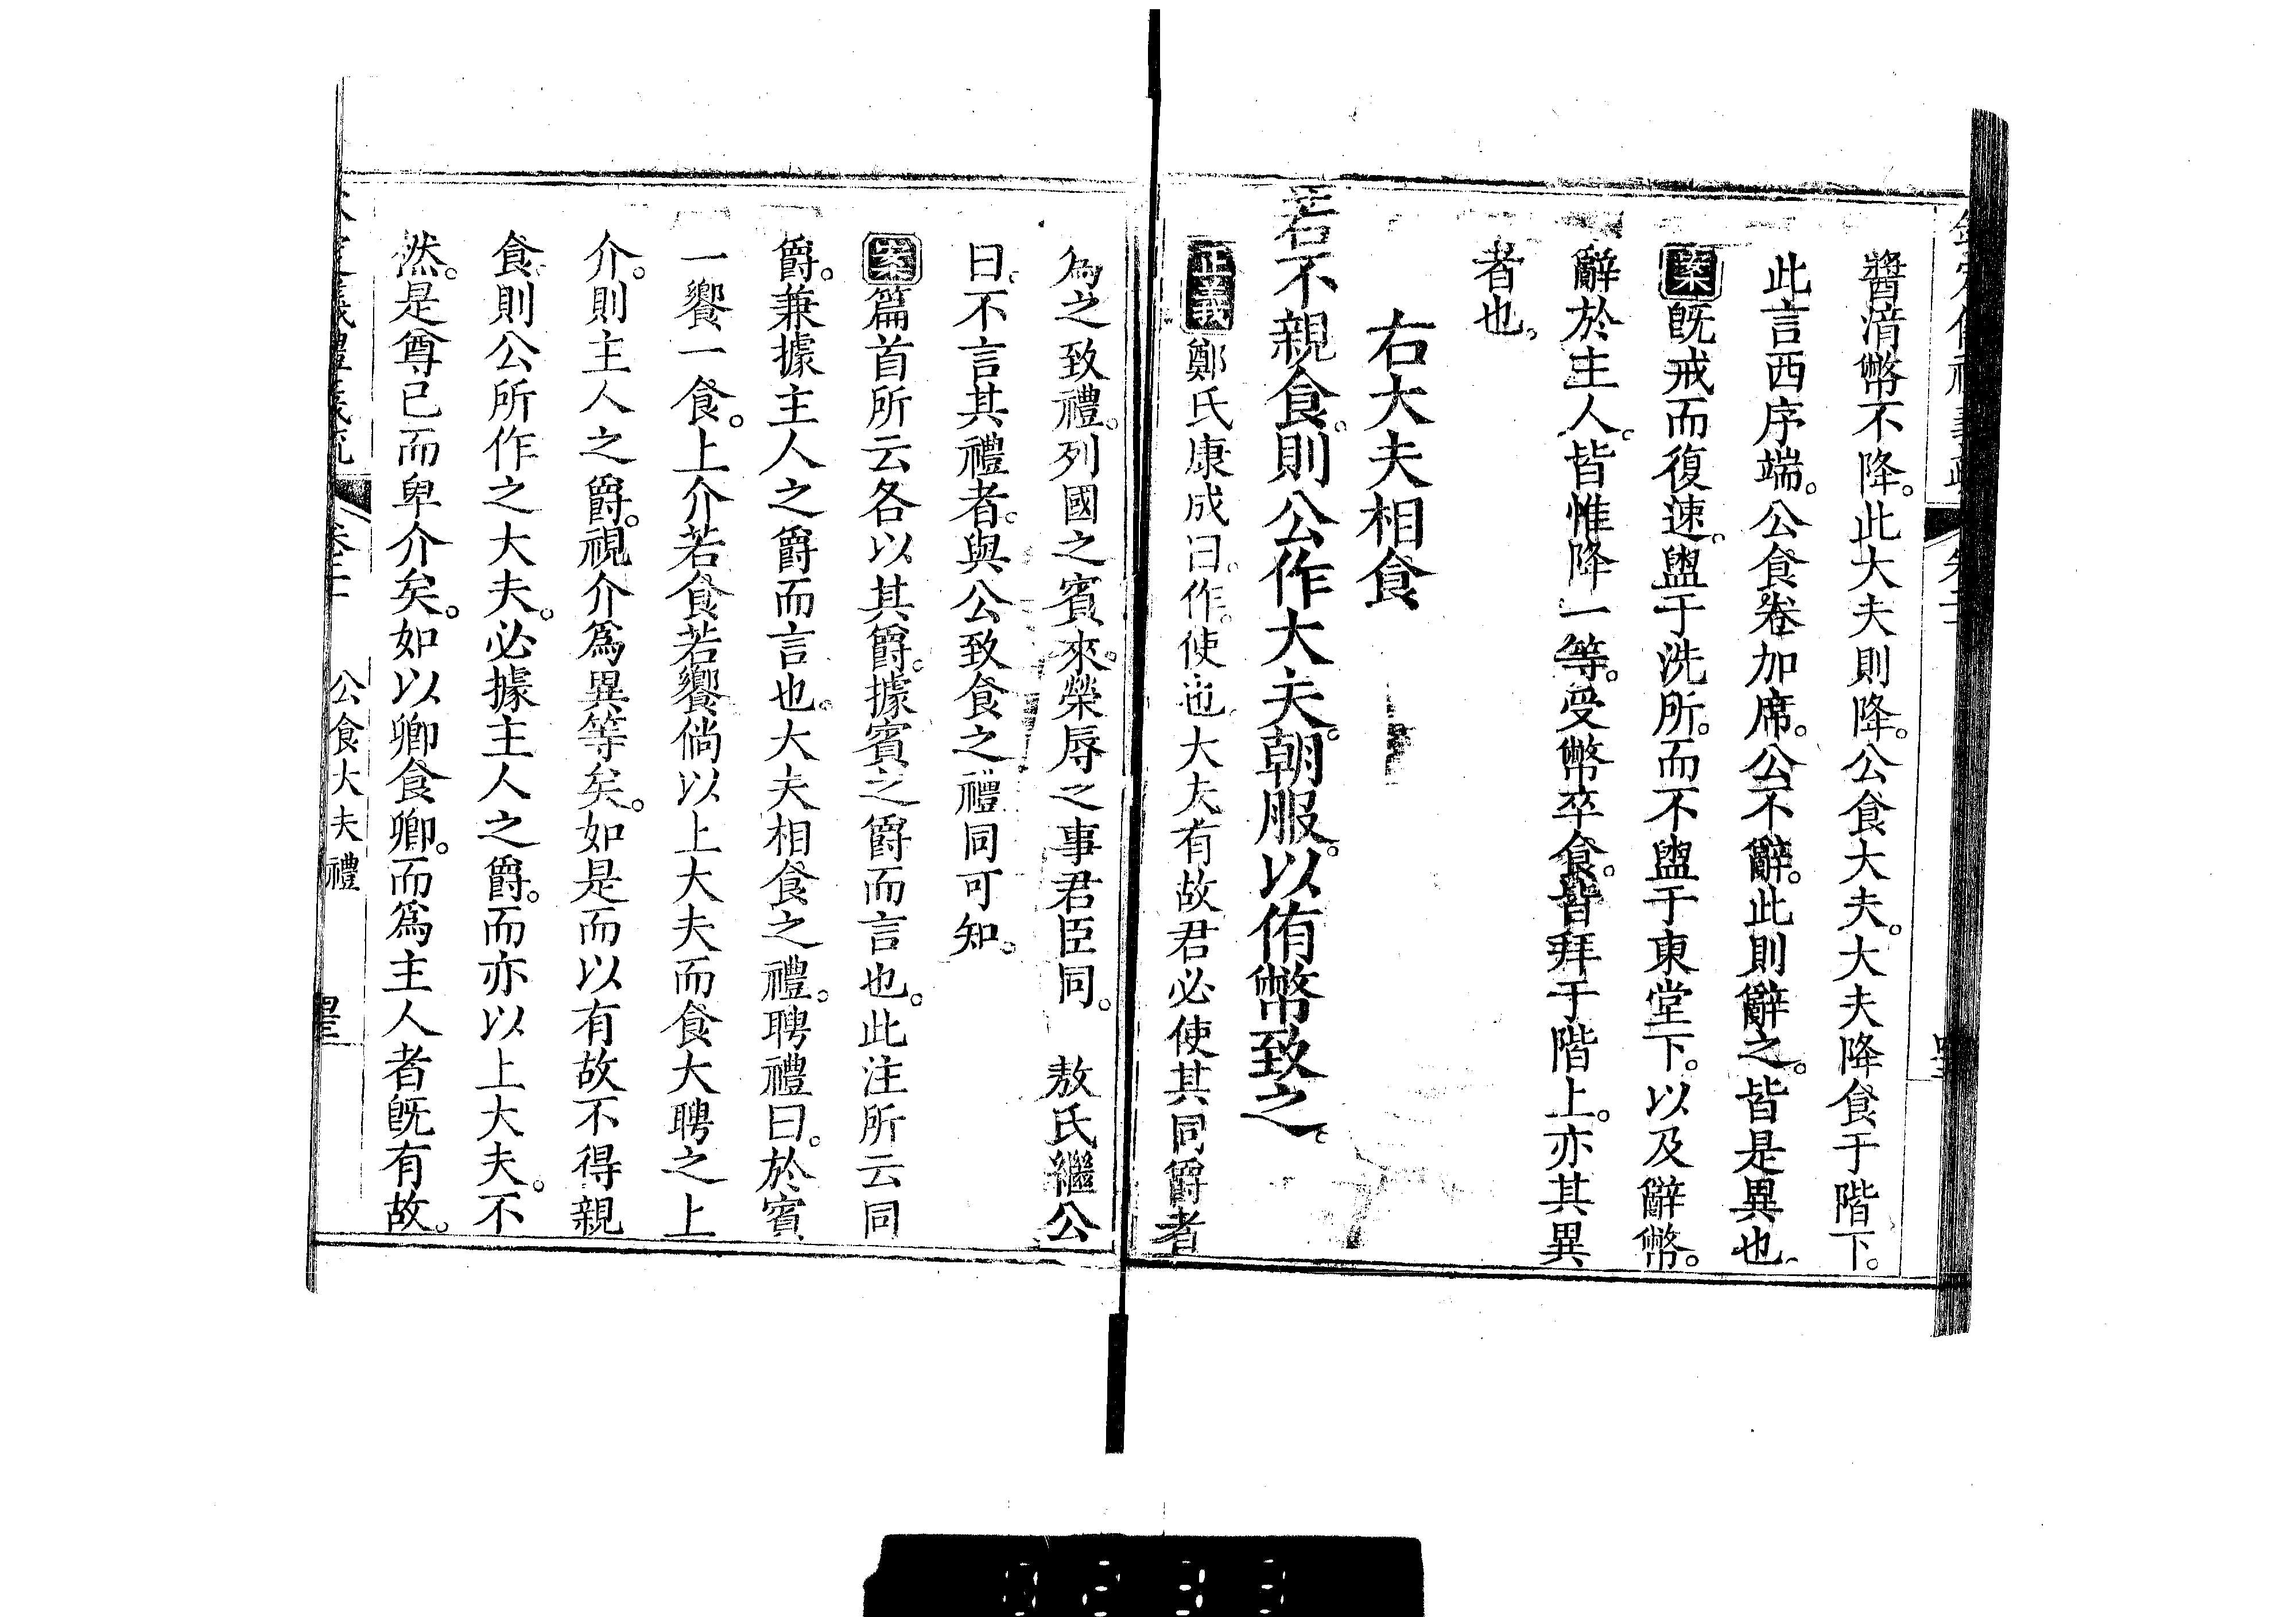 醬湆幣不降。此大夫則降。公食大夫。大夫降食于階下。
此言西序端。公食卷加席。公不辭。此則辭之。皆是異也。
案旣戒而復速。盥于洗所。而不盥于東堂下。以及辭幣。
辭於主人。皆惟降一等。受幣卒食。皆拜于階上。亦其異
者也。
右大夫相食
若不親食。則公作大夫。朝服。以侑幣致之。
正義鄭氏康成曰。作。使也。大夫有故君必使其同爵者
爲之致禮。列國之賓來。榮辱之事君臣同。 敖氏繼公
曰。不言其禮者。與公致食之禮同可知。
案篇首所云各以其爵。據賓之爵而言也。此注所云同
爵。兼據主人之爵而言也。大夫相食之禮。聘禮曰。於賓
一饗一食。上介若食若饗倘以上大夫而食大聘之上
介。則主人之爵。視介爲異等矣。如是而以有故不得親
食。則公所作之大夫。必據主人之爵。而亦以上大夫。不
然。是尊已而卑介矣。如以卿食卿。而爲主人者旣有故。
公食大夫禮
0233